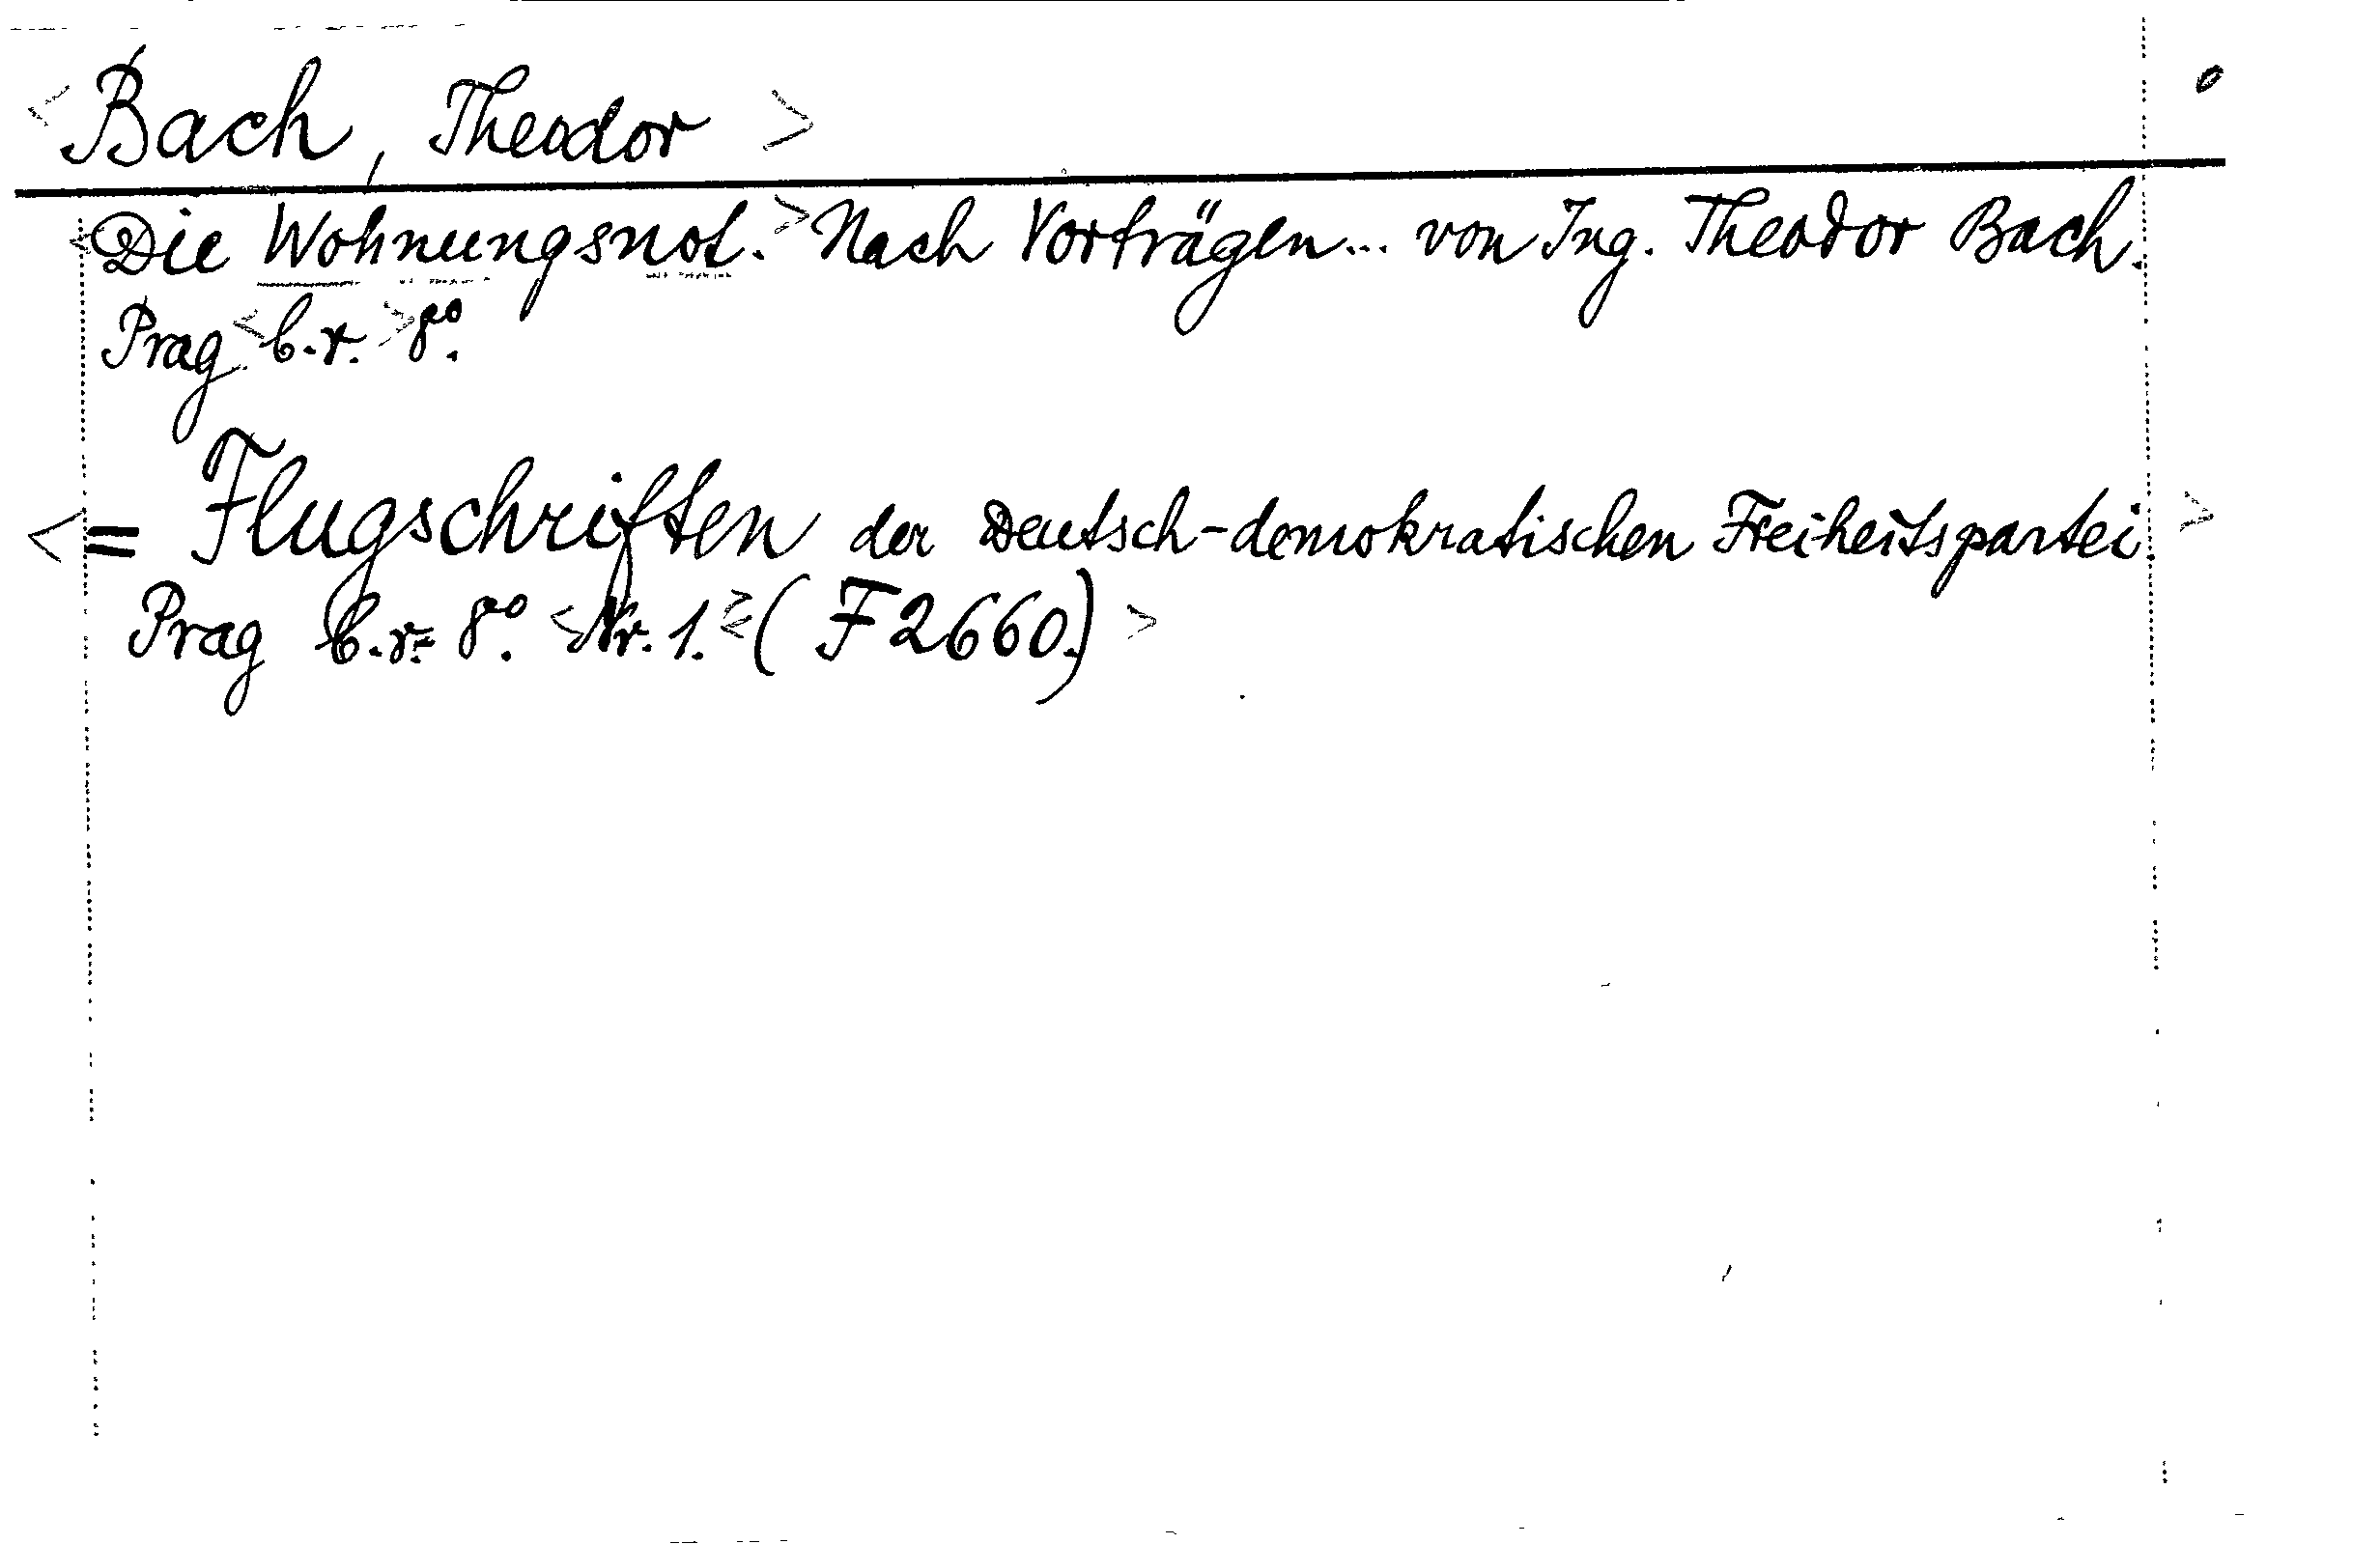 <Bach, Theodor>
<Die Wohnungsnot.> Nach Vorträgen... von Ing. Theodor Bach.
Prag <b.r.> 8°.
<= Flugschriften der Deutsch-demokratischen Freiheitspartei.>
Prag b.r. 8°. <Nr. 1.> <(F 2660.)>